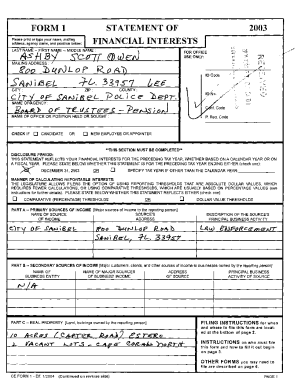 FORM 1 STATEMENT OF 2003
FINANCIAL INTERESTS
Please print or type your name, mailing address, agency name, and position below:
LAST NAME -- FIRST NAME -- MIDDLE NAME:
ASHBY SCOTT OWEN
MAILING ADDRESS:
800 DUNLOP ROAD
SANIBEL FL. 33957 LEE
CITY: ZIP: COUNTY:
CITY OF SANIBEL POLICE DEPT.
NAME OF AGENCY:
BOARD OF TRUSTEES - PENSION
NAME OF OFFICE OR POSITION HELD OR SOUGHT:
FOR OFFICE USE ONLY:
ID Code
ID No.
P. Req. Code
CHECK IF CANDIDATE OR NEW EMPLOYEE OR APPOINTEE
**THIS SECTION MUST BE COMPLETED**
DISCLOSURE PERIOD:
THIS STATEMENT REFLECTS YOUR FINANCIAL INTERESTS FOR THE PRECEDING TAX YEAR, WHETHER BASED ON A CALENDAR YEAR OR ON
A FISCAL YEAR. PLEASE STATE BELOW WHETHER THIS STATEMENT IS FOR THE PRECEDING TAX YEAR ENDING EITHER (check one):
DECEMBER 31, 2003 OR SPECIFY TAX YEAR IF OTHER THAN THE CALENDAR YEAR:
MANNER OF CALCULATING REPORTABLE INTERESTS:
THE LEGISLATURE ALLOWS FILERS THE OPTION OF USING REPORTING THRESHOLDS THAT ARE ABSOLUTE DOLLAR VALUES, WHICH
REQUIRES FEWER CALCULATIONS, OR USING COMPARATIVE THRESHOLDS, WHICH ARE USUALLY BASED ON PERCENTAGE VALUES (see
instructions for further details). PLEASE STATE BELOW WHETHER THIS STATEMENT REFLECTS EITHER (check one):
COMPARATIVE (PERCENTAGE) THRESHOLDS OR DOLLAR VALUE THRESHOLDS
PART A -- PRIMARY SOURCES OF INCOME [Major sources of income to the reporting person]
NAME OF SOURCE OF INCOME SOURCE'S ADDRESS DESCRIPTION OF THE SOURCE'S PRINCIPAL BUSINESS ACTIVITY
CITY OF SANIBEL 800 DUNLOP ROAD LAW ENFORCEMENT
SANIBEL, FL. 33957
PART B -- SECONDARY SOURCES OF INCOME [Major customers, clients, and other sources of income to businesses owned by the reporting person]
NAME OF BUSINESS ENTITY NAME OF MAJOR SOURCES OF BUSINESS' INCOME ADDRESS OF SOURCE PRINCIPAL BUSINESS ACTIVITY OF SOURCE
N/A
PART C -- REAL PROPERTY [Land, buildings owned by the reporting person]
10 ACRES (CARTER ROAD) ESTERO
2 VACANT LOTS - CAPE CORAL NORTH
FILING INSTRUCTIONS for when and where to file this form are located at the bottom of page 2.
INSTRUCTIONS on who must file this form and how to fill it out begin on page 3.
OTHER FORMS you may need to file are described on page 6.
CE FORM 1 - Eff. 1/2004 (Continued on reverse side) PAGE 1